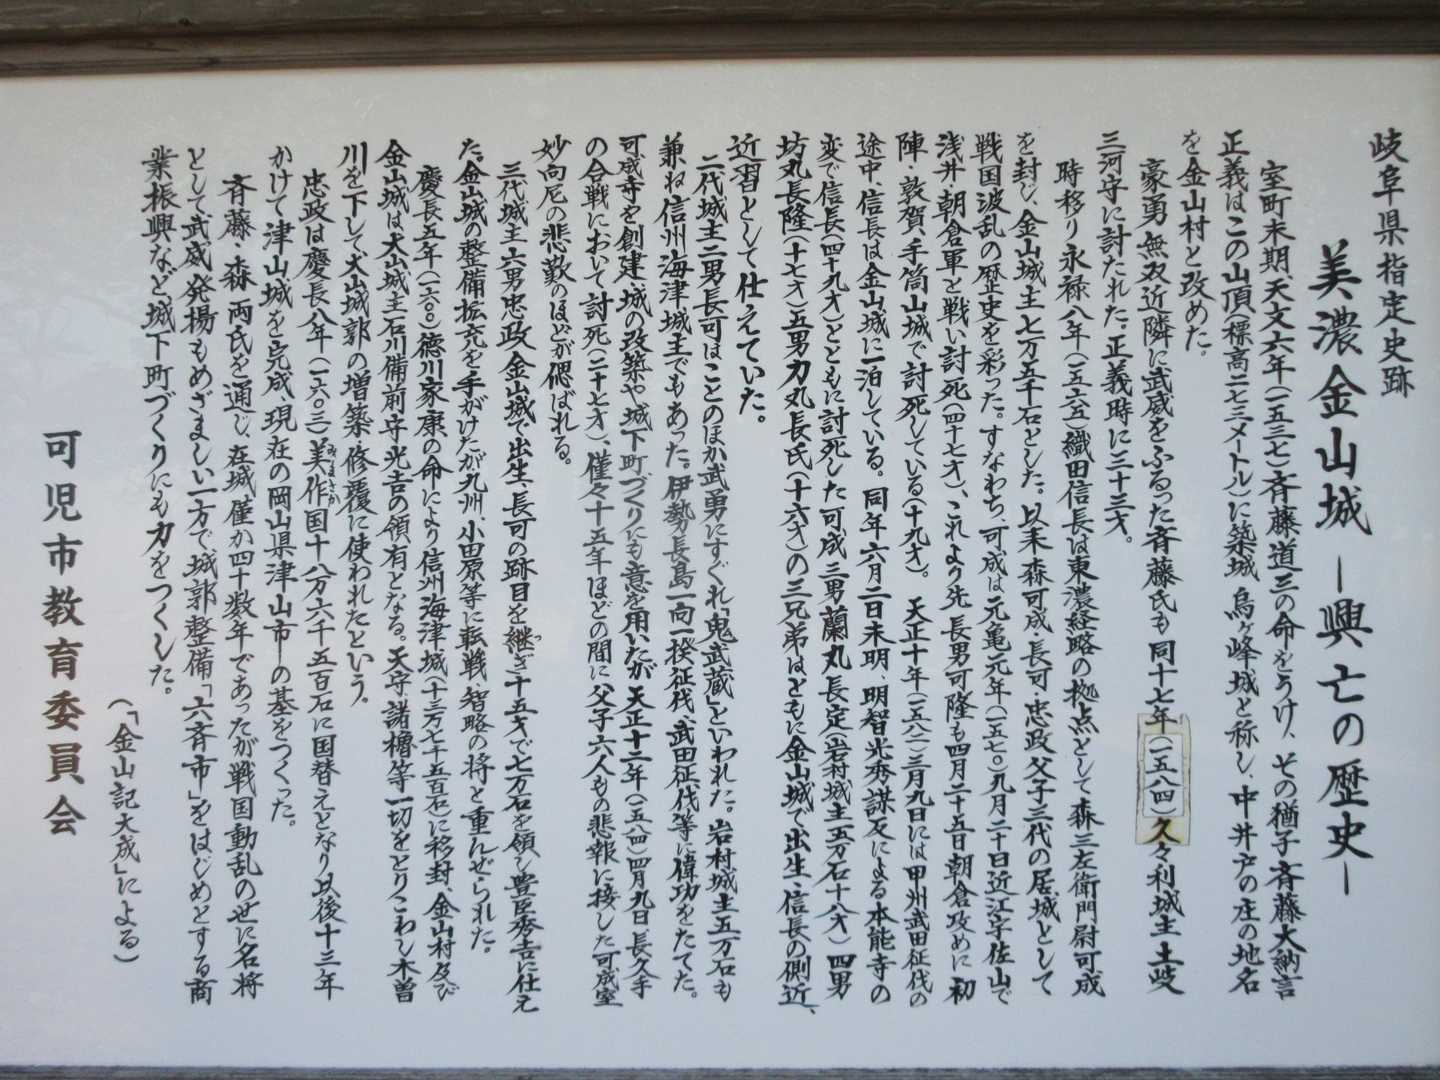 岐阜県指定史跡
美濃金山城 ―興亡の歴史―
室町末期、天文六年(一五三七)斉藤道三の命をうけ、その猶子斉藤大納言
正義はこの山頂(標高二七三メートル)に築城、烏ヶ峰城と称し、中井戸の庄の地名
を金山村と改めた。
豪勇無双近隣に武威をふるった斉藤氏も同十七年(一五八四)久々利城主土岐
三河守に討たれた。正義時に三十三才。
時移り永禄八年(一五六五)織田信長は東濃経略の拠点として森三左衛門尉可成
を封じ、金山城主七万五千石とした。以来森可成・長可・忠政父子三代の居城として
戦国波乱の歴史を彩った。すなわち、可成は元亀元年(一五七〇)九月二十日近江宇佐山で
浅井・朝倉軍と戦い討死(四十七才)、これより先長男可隆も四月二十五日朝倉攻めに初
陣・敦賀、手筒山城で討死している(十九才)。天正十年(一五八二)三月九日には甲州武田征伐の
途中、信長は金山城に一泊している。同年六月二日未明、明智光秀謀反による本能寺の
変で信長(四十九才)とともに討死した可成三男蘭丸長定(岩村城主五万石十八才)四男
坊丸長隆(十七才)五男力丸長氏(十六才)の三兄弟はともに金山城で出生、信長の側近、
近習として仕えていた。
二代城主二男長可はことのほか武勇にすぐれ「鬼武蔵」といわれた。岩村城主五万石も
兼ね信州海津城主でもあった。伊勢長島一向一揆征伐、武田征伐等に偉功をたてた。
可成寺を創建、城の改築や城下町づくりにも意を用いたが天正十二年(一五八四)四月九日長久手
の合戦において討死(二十七才)、僅々十五年ほどの間に父子六人もの悲報に接した可成室
妙向尼の悲歎のほどが偲ばれる。
三代城主六男忠政金山城で出生、長可の跡目を継ぎ十五才で七万石を領し豊臣秀吉に仕え
た。金山城の整備拡充を手がけたが九州、小田原等に転戦、智略の将と重んぜられた。
慶長五年(一六〇〇)徳川家康の命により信州海津城(十三万七千五百石)に移封、金山村及び
金山城は犬山城主石川備前守光吉の領有となる。天守、諸櫓等一切をとりこわし木曽
川を下して犬山城郭の増築・修覆に使われたという。
忠政は慶長八年(一六〇三)美作国十八万六千五百石に国替えとなり以後十三年
かけて津山城を完成、現在の岡山県津山市の基をつくった。
斉藤・森両氏を通じ、在城僅か四十数年であったが戦国動乱の世に名将
として武威発揚もめざましい一方で城郭整備「六斉市」をはじめとする商
業振興など城下町づくりにも力をつくした。
(「金山記大成」による)
可児市教育委員会